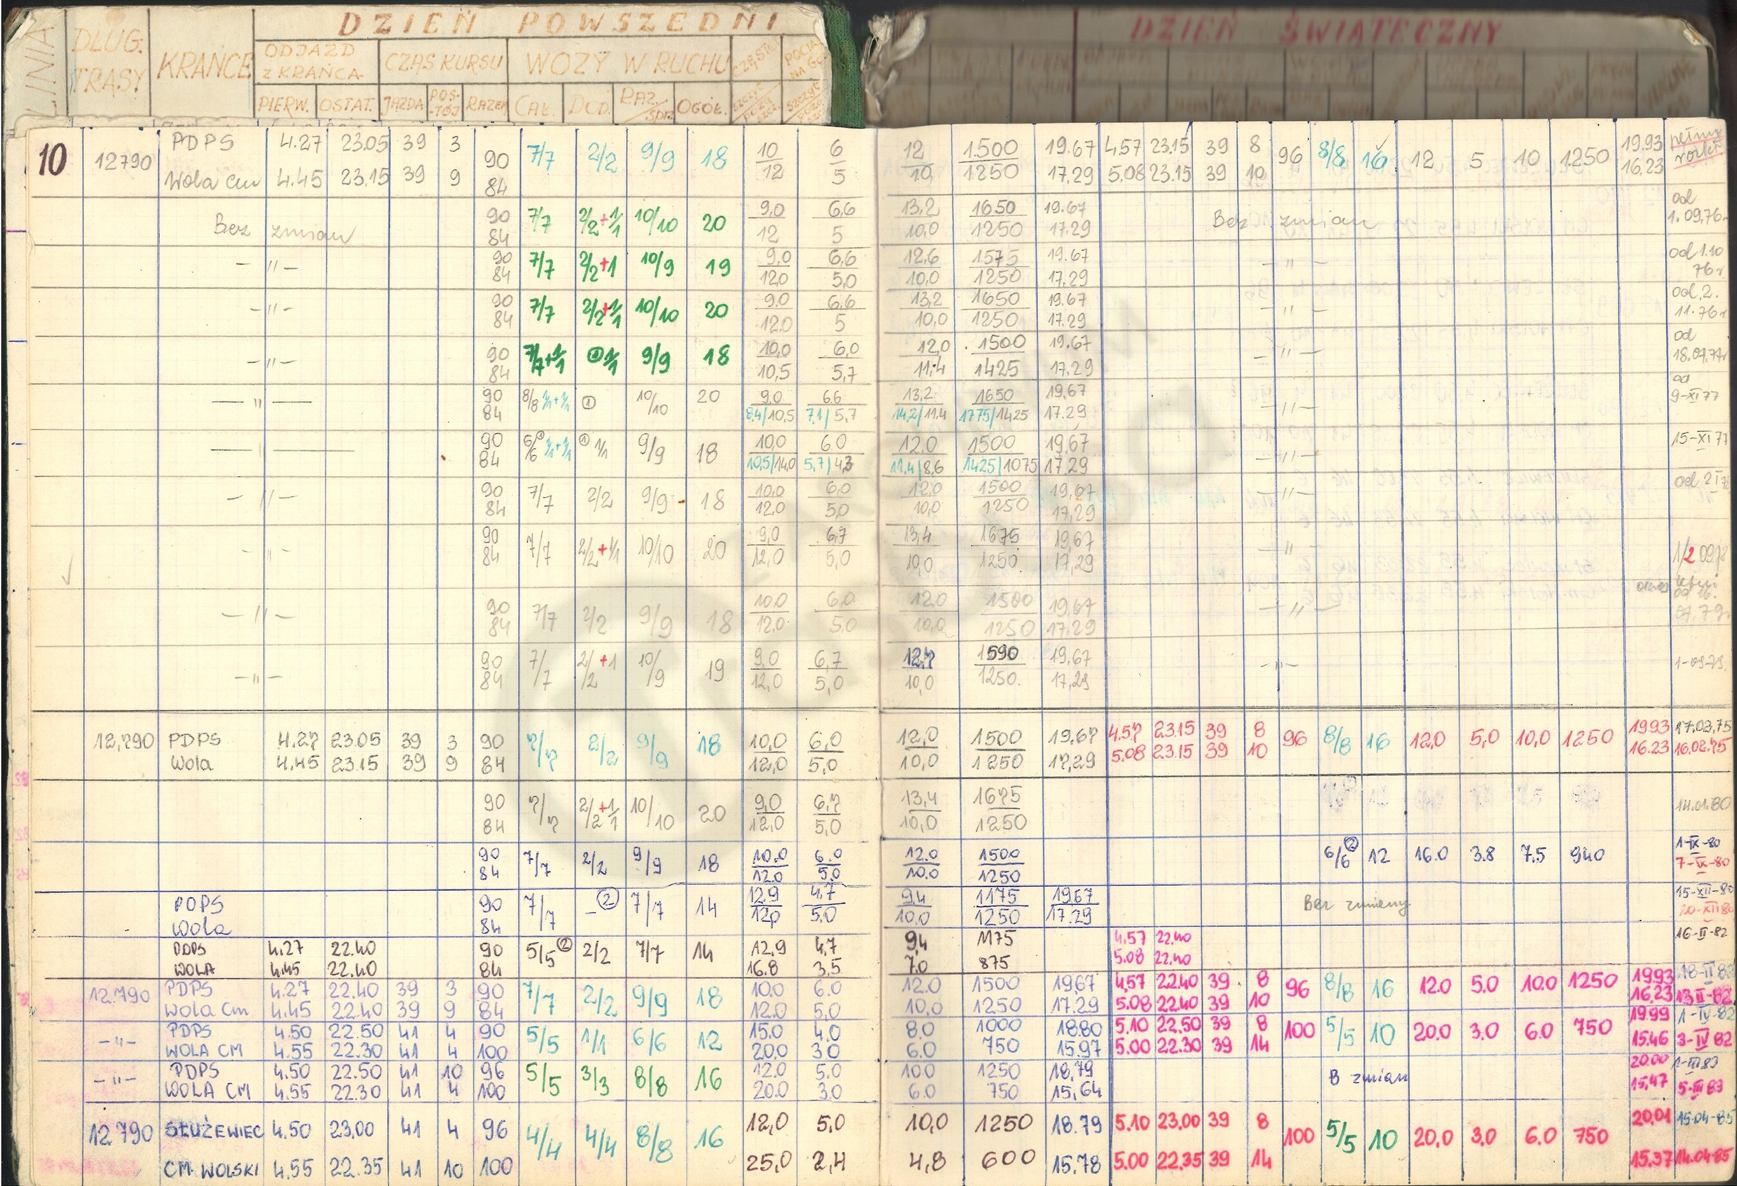 DZIEŃ POWSZEDNI
DZIEŃ ŚWIĄTECZNY
LINIA DŁUG. TRASY KRAŃCE ODJAZD Z KRAŃCA CZAS KURSU WOZY W RUCHU
PIERW. OSTAT. JAZDA POS-TÓJ RAZEM CAŁ. DOD. RAZ. OGÓŁ.
10 12790 PDPS 4.27 23.05 39 3 90 7/7 2/2 9/9 18 10/12 6/5 12 1500 19.67 4.57 23.15 39 8 96 8/8 16 12 5 10 1250 19.93
Wola cm 4.45 23.15 39 9 84 10 1250 17.29 5.08 23.15 39 10 16,23
Bez zmian 90 7/7 2/2+1/1 10/10 20 9,0 6,6 13,2 1650 19.67 Bez zmian od
84 12 5 10,0 1250 17.29 1.09.76r
—"— 90 7/7 2/2+1 10/9 19 9,0 6,6 12,6 1575 19.67 —"— od 1.10
84 12,0 5,0 10,0 1250 17.29 76r
—"— 90 7/7 2/2+1/1 10/10 20 9,0 6,6 13,2 1650 19.67 —"— od 2.
84 12.0 5 10,0 1250 17.29 11.76r
—"— 90 7/7+1/1 9/9 18 10,0 6,0 12,0 1500 19,67 —"— od
84 10,5 5,7 11,4 1425 17.29
—"— 90 10/10 20 9,0 6.6 13,2 1650 19,67 —"— od
84 8,4/10,5 7,1/5,7 14,2/11.4 1775/1425 17.29 9-XI 77
—"— 90 9/9 18 10,0 6,0 12.0 1500 19,67 —"— 15-XI 77
84 10,5/14,0 5,7/4,3 11,4/8,6 1425/1075 17.29
—"— 90 7/7 2/2 9/9 18 10,0 6,0 12,0 1500 19,67 —"—
84 12,0 5,0 10,0 1250 17,29
—"— 90 7/7 2/2+1/1 10/10 20 9,0 6,7 13,4 1675 19,67 —"—
84 12,0 5,0 10,0 1250 17,29
—"— 90 7/7 2/2 9/9 18 10,0 6,0 12,0 1500 19,67 —"—
84 12,0 5,0 10,0 1250 17.29
—"— 90 7/7 2/2+1 10/9 19 9,0 6,7 12,7 1590 19,67 —"— 1-09-79.
84 12,0 5,0 10,0 1250. 17,29
12,790 PDPS 4.27 23.05 39 3 90 7/7 2/2 9/9 18 10,0 6,0 12,0 1500 19.67 4.57 23.15 39 8 96 8/8 16 12,0 5,0 10,0 1250 19.93 17.03.75
Wola 4.45 23.15 39 9 84 12,0 5,0 10,0 1250 17,29 5.08 23.15 39 10 16.23 16.02.75
90 7/7 2/2+1/1 10/10 20 9,0 6,7 13,4 1675 14.01.80
84 12,0 5,0 10,0 1250
90 7/7 2/2 9/9 18 10,0 6.0 12.0 1500 6/6 ② 12 16.0 3.8 7.5 940 1-IX-80
84 12.0 5.0 10.0 1250 7-IX-80
PDPS 90 7/7 -② 7/7 14 12,9 4,7 9,4 1175 19.67 Bez zmiany 15-XII-80
Wola 84 12,0 5,0 10,0 1250 17.29 20-XII 80
PDPS 4.27 22.40 90 5/5② 2/2 7/7 14 12,9 4,7 9,4 1175 4.57 22.40 16-II-82
WOLA 4.45 22.40 84 16.8 3,5 7,0 875 5.08 22.40
12.790 PDPS 4.27 22.40 39 3 90 7/7 2/2 9/9 18 10,0 6.0 12.0 1500 19.67 4.57 22.40 39 8 96 8/8 16 12.0 5.0 10.0 1250 19.93 18-II 82
Wola Cm 4.45 22.40 39 9 84 12.0 5,0 10,0 1250 17.29 5.08 22.40 39 10 16,23 13 II-82
—"— PDPS 4.50 22.50 41 4 90 5/5 1/1 6/6 12 15.0 4.0 8.0 1000 18.80 5.10 22,50 39 8 100 5/5 10 20.0 3.0 6.0 750 19.99 1-IV-82
WOLA CM 4.55 22.30 41 4 100 20.0 3.0 6.0 750 15.97 5.00 22.30 39 14 15.46 3-IV 82
—"— PDPS 4.50 22.50 41 10 96 5/5 3/3 8/8 16 12.0 5.0 10.0 1250 18,79 B zmian 20.00 1-III 83
WOLA CM 4.55 22.30 41 4 100 20.0 3.0 6.0 750 15,64 15,47 5-III 83
12.790 SŁUŻEWIEC 4.50 23,00 41 4 96 4/4 4/4 8/8 16 12,0 5,0 10,0 1250 18.79 5.10 23,00 39 8 100 5/5 10 20,0 3,0 6,0 750 20,01 15.04-85
CM. WOLSKI 4.55 22.35 41 10 100 25,0 2,4 4,8 600 15,78 5.00 22,35 39 14 15.37 14.04-85